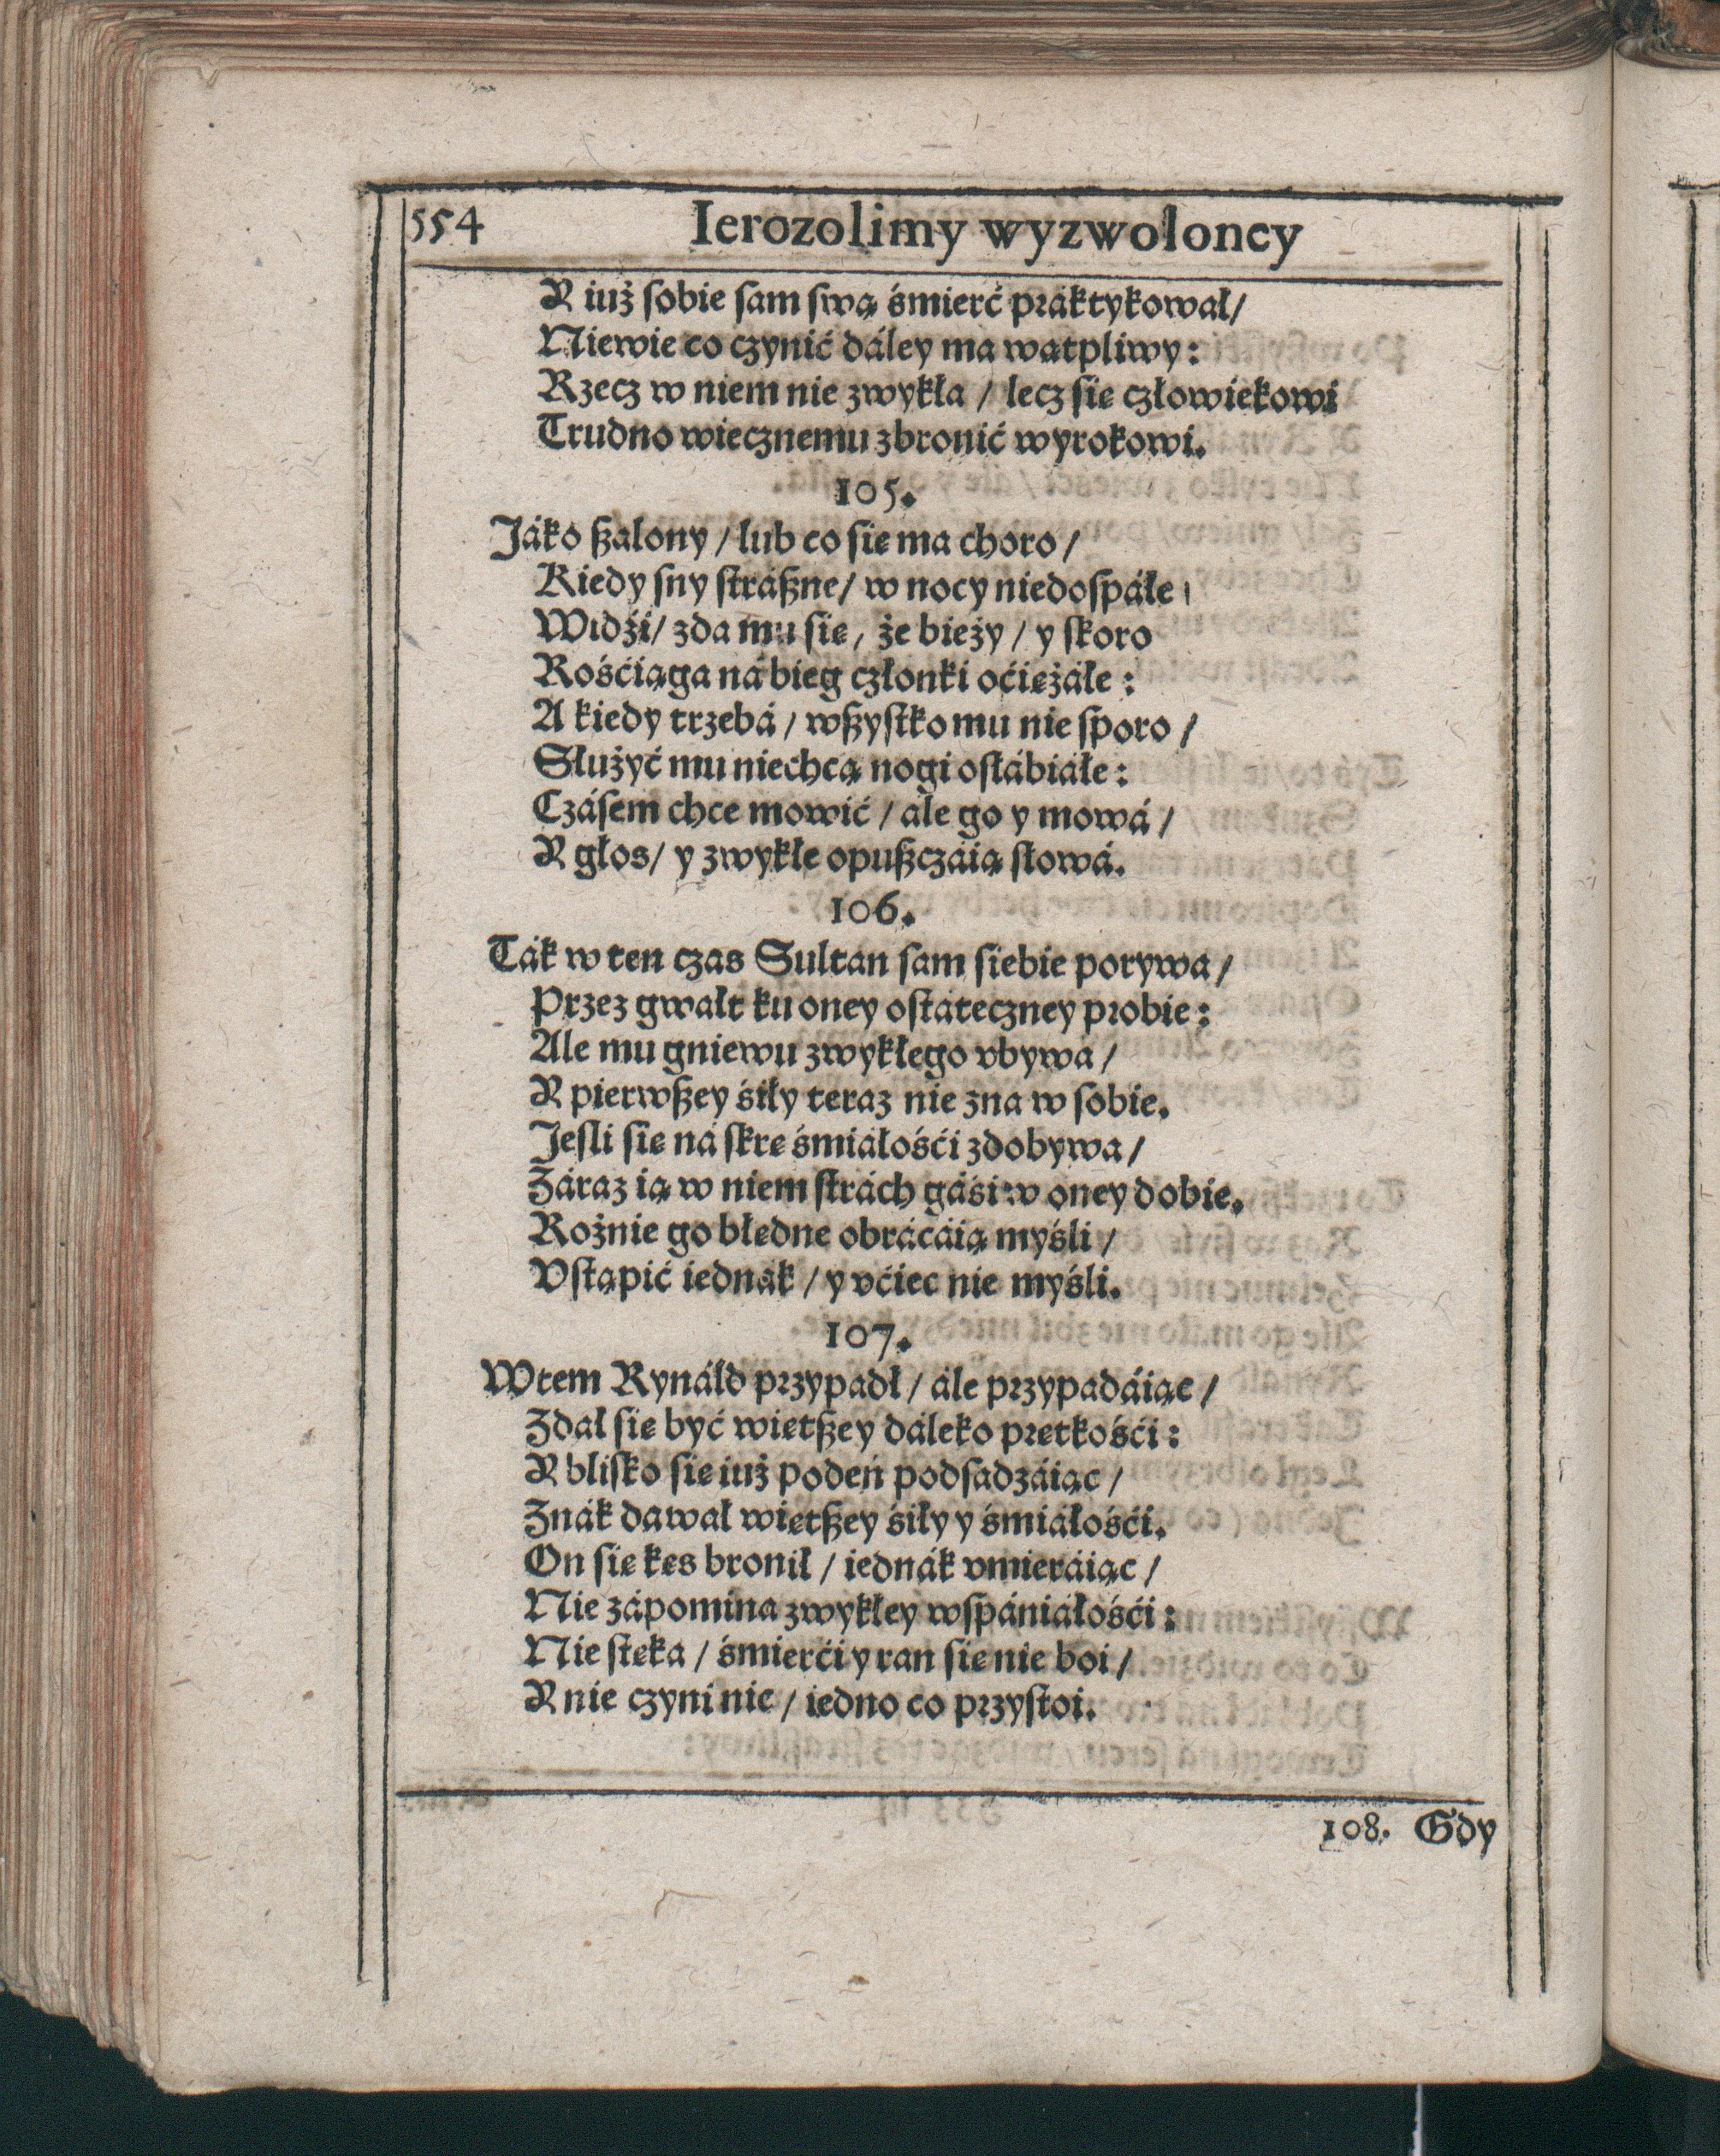 554 Ierozolimy wyzwoloney
Y iuż ſobie ſam ſwą śmierć práktykował/
Niewie co czynić dáley ma wątpliwy:
Rzecz w niem nie zwykła / lecz się człowiekowi
Trudno wiecznemu zbronić wyrokowi.
105.
Jáko ßalony / lub co się ma choro /
Kiedy ſny ſtráßne / w nocy niedoſpáłe /
Widźi / zda mu się, że bieży / y ſkoro
Rośćiąga ná bieg członki oćiężáłe:
A kiedy trzebá / wßyſtko mu nie ſporo /
Służyć mu niechcą nogi osłábiáłe:
Czáſem chce mowić / ále go y mowá /
Y głos / y zwykłe opußczáią słowá.
106.
Ták w ten czas Sultan ſam siebie porywa /
Przez gwałt ku oney oſtáteczney probie:
Ale mu gniewu zwykłego vbywa /
Y pierwßey śiły teraz nie zna w ſobie.
Jeſli się ná ſkrę śmiáłośći zdobywa /
Záraz ią w niem ſtrách gáśi w oney dobie.
Rożnie go błędne obrácáią myśli /
Vſtąpić iednák / y vćiec nie myśli.
107.
Wtem Rynáld przypadł / ále przypadáiąc /
Zdał się być więtßey dáleko prętkośći:
Y bliſko się iuż podeń podſadzáiąc /
Znák dawał więtßey śiły y śmiáłośći.
On się kęs bronił / iednák vmieráiąc /
Nie zápomina zwykłey wſpániáłośći:
Nie stęka / śmierći y ran się nie boi /
Y nie czyni nic / iedno co przyſtoi.
108. Gdy